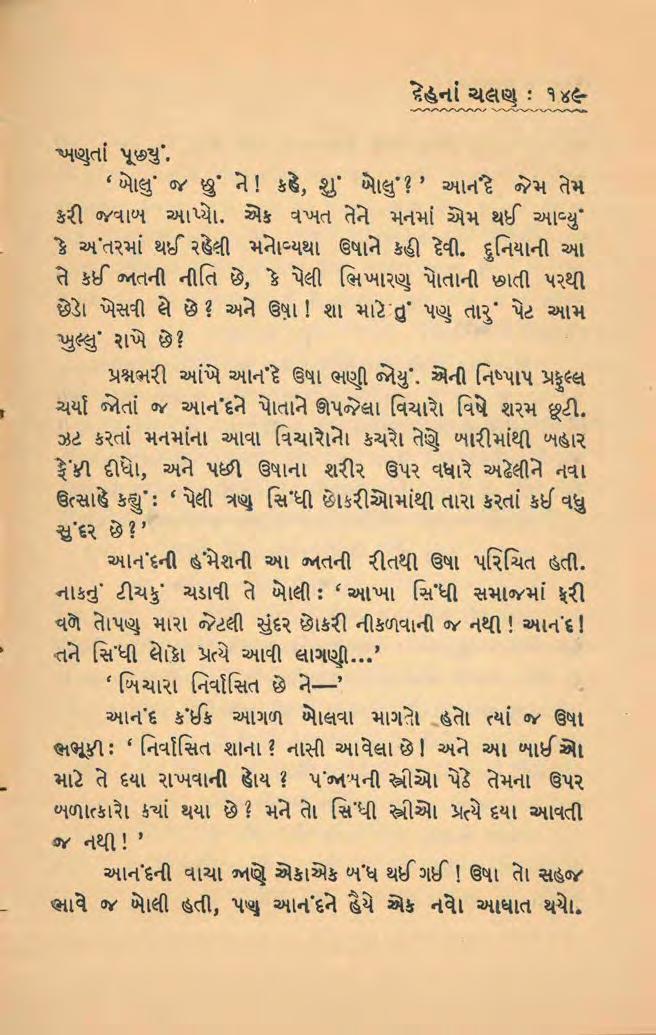 દેહનાં ચલણ : ૧૪૯
ખણતાં પૂછ્યું.
‘બોલું જ છું ને! કહે, શું બોલું?’ આનંદે જેમ તેમ
કરી જવાબ આપ્યો. એક વખત તેને મનમાં એમ થઈ આવ્યું
કે અંતરમાં થઈ રહેલી મનોવ્યથા ઉષાને કહી દેવી. દુનિયાની આ
તે કઈ જાતની નીતિ છે, કે પેલી ભિખારણ પોતાની છાતી પરથી
છેડો ખેસવી લે છે? અને ઉષા! શા માટે તું પણ તારું પેટ આમ
ખુલ્લું રાખે છે?
પ્રશ્નભરી આંખે આનંદે ઉષા ભણી જોયું. એની નિષ્પાપ પ્રફુલ્લ
ચર્યા જોતાં જ આનંદને પોતાને ઊપજેલા વિચારો વિષે શરમ છૂટી.
ઝટ કરતાં મનમાંના આવા વિચારોનો કચરો તેણે બારીમાંથી બહાર
ફેંકી દીધો, અને પછી ઉષાના શરીર ઉપર વધારે અઢેલીને નવા
ઉત્સાહે કહ્યું : ‘પેલી ત્રણ સિંધી છોકરીઓમાંથી તારા કરતાં કઈ વધુ
સુંદર છે?’
આનંદની હંમેશની આ જાતની રીતથી ઉષા પરિચિત હતી.
નાકનું ટીચકું ચડાવી તે બોલી : ‘આખા સિંધી સમાજમાં ફરી
વળે તોપણ મારા જેટલી સુંદર છોકરી નીકળવાની જ નથી! આનંદ!
તને સિંધી લોકો પ્રત્યે આવી લાગણી...’
‘બિચારા નિર્વાસિત છે ને—’
આનંદ કંઈક આગળ બોલવા માગતો હતો ત્યાં જ ઉષા
ભભૂકી : ‘નિર્વાસિત શાના? નાસી આવેલા છે! અને આ બાઈઓ
માટે તે દયા રાખવાની હોય? પંજાબની સ્ત્રીઓ પેઠે તેમના ઉપર
બળાત્કારો ક્યાં થયા છે? મને તો સિંધી સ્ત્રીઓ પ્રત્યે દયા આવતી
જ નથી!’
આનંદની વાચા જાણે એકાએક બંધ થઈ ગઈ! ઉષા તો સહજ
ભાવે જ બોલી હતી, પણ આનંદને હૈયે એક નવો આઘાત થયો.